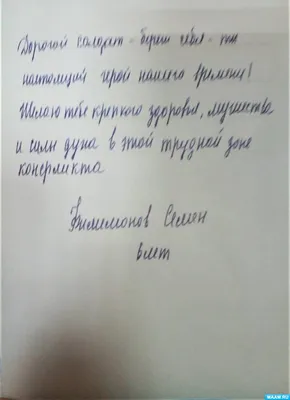 Дорогой солдат - береги себя - ты
настоящий герой нашего времени!
Желаю тебе крепкого здоровья, мужества
и силы духа в этой трудной зоне
конфликта
Филимонов Семён
8 лет
MAAM.RU